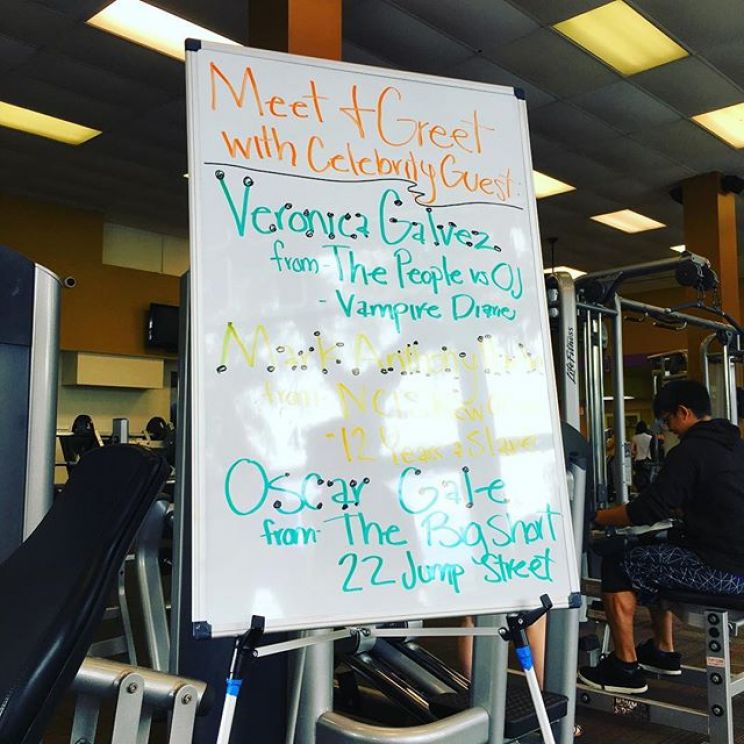 Meet & Greet
with Celebrity Guest:
Veronica Galvez
from - The People vs OJ
- Vampire Diarie
Mark Anthony
from NCIS New
- 12 Years a Slave
Oscar Gale
from - The Big Short
22 Jump Street
Life Fitness